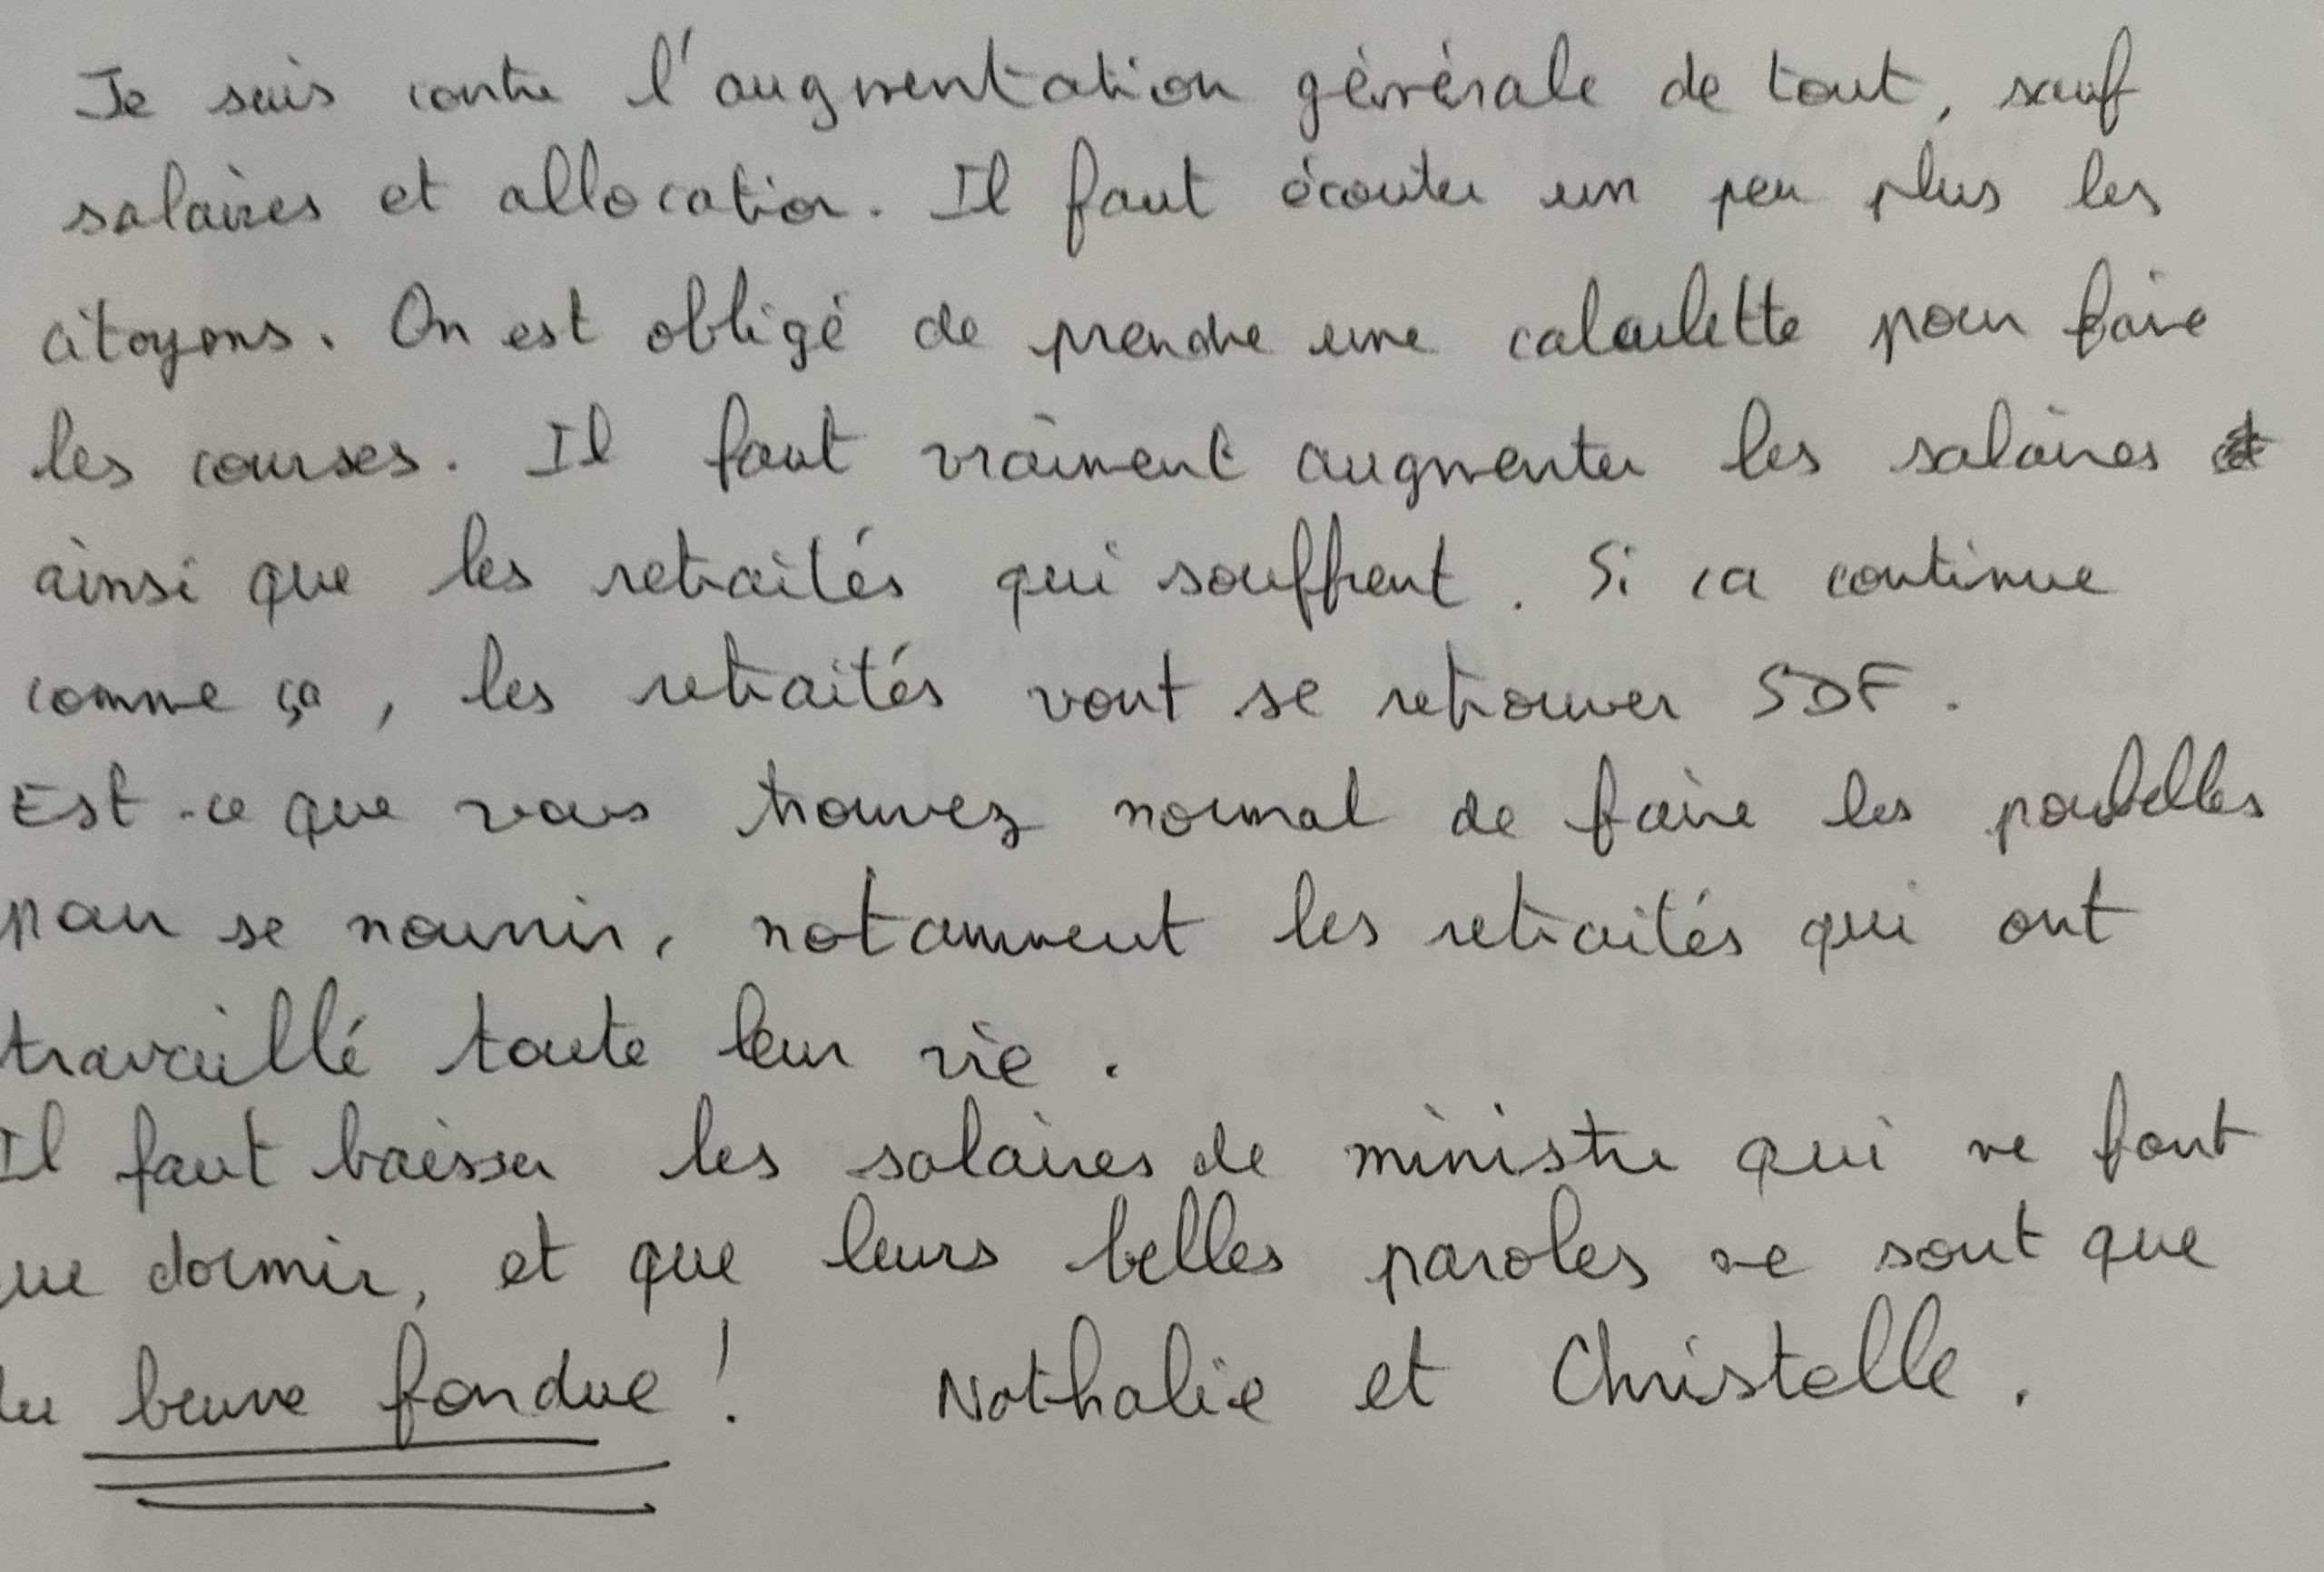 Je suis contre l'augmentation générale de tout, sauf
salaires et allocation. Il faut écouter un peu plus les
citoyens. On est obligé de prendre une calculette pour faire
les courses. Il faut vraiment augmenter les salaires
ainsi que les retraités qui souffrent. Si ca continue
comme ça, les retraités vont se retrouver SDF.
Est-ce que vous trouvez normal de faire les poubelles
pour se nourrir, notamment les retraités qui ont
travaillé toute leur vie.
Il faut baisser les salaires de ministre qui ne font
que dormir, et que leurs belles paroles ne sont que
du beurre fondue ! Nathalie et Christelle.